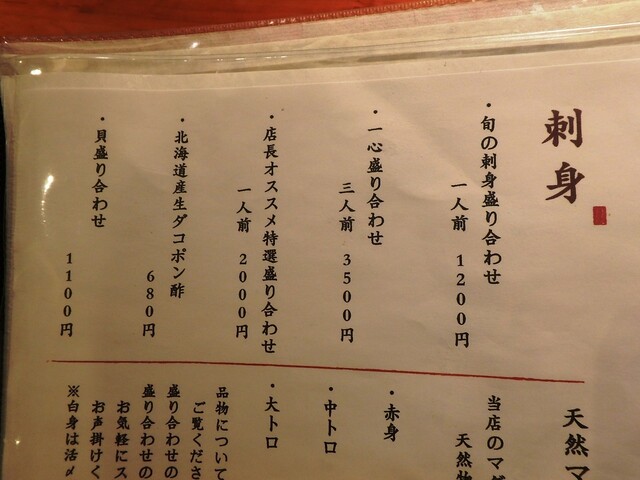 刺身
・旬の刺身盛り合わせ
一人前 1200円
・一心盛り合わせ
三人前 3500円
・店長オススメ特選盛り合わせ
一人前 2000円
・北海道産生ダコポン酢
680円
・貝盛り合わせ
1100円
天然マ
当店のマグ
天然物
・赤身
・中トロ
・大トロ
品物について
ご覧くださ
盛り合わせの
盛り合わせの
お気軽にス
お声掛けく
※白身は活〆